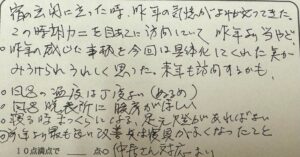 宿の玄関に立った時、昨年の気憶がよみがえってきた。
この時期カニを目当てに訪問していて昨年もやど
昨年の感じた事柄を今回は具体化してくれた笑が
みうけられうれしく思った。来年も訪問するかも。
・風呂の温度は丁度よい(ぬるめ)
・風呂 脱衣所に 腰席がほしい
・寝る時まっくらによる、足元灯があればよい
・昨年より最も良い改善点は備員が多くなったこと
10点満点で 点 仲居さん対応よい